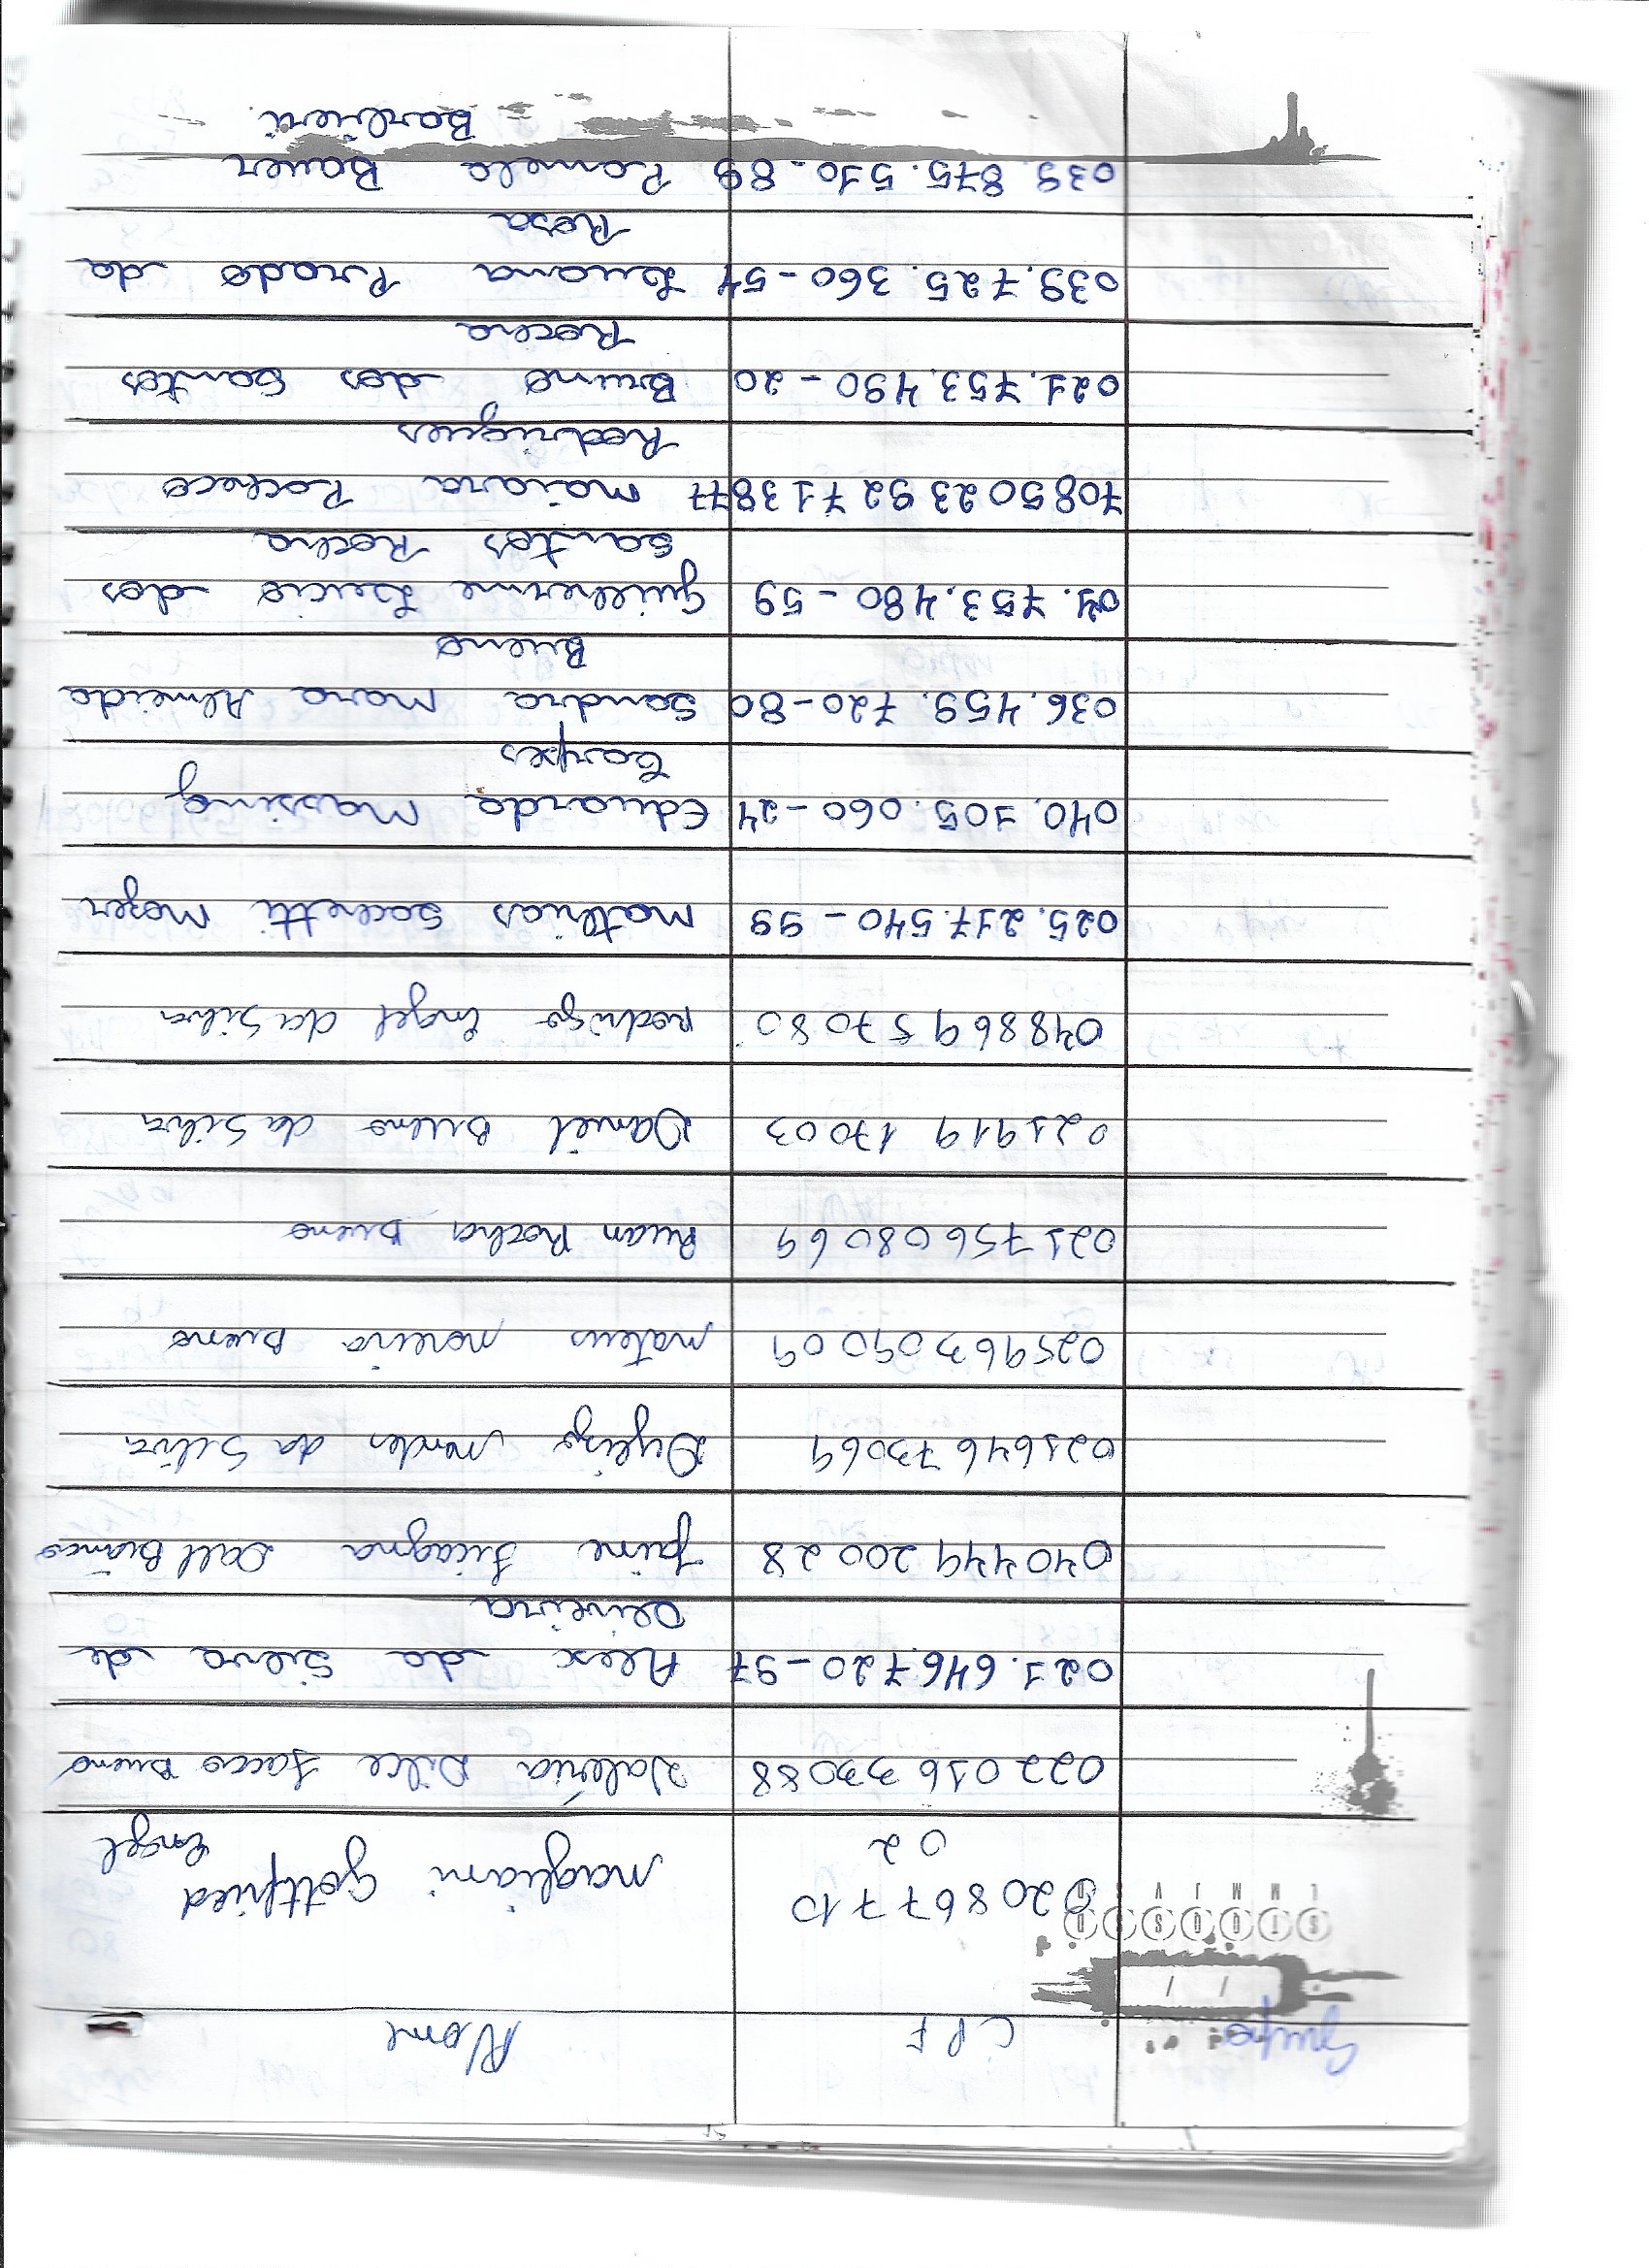 Grupo CPF Nome
/ /
S T Q Q S S D
L M M J V S D
02086771002 Magliani Gottfried Engel
02201633088 Valéria Dilce Sacco Bueno
021.646720-97 Alex da Silva de
Oliveira
04044920028 Jaine Dall Bianco
02164673069 Mendes da Silva
02596309009 Mateus Moreira Bueno
02175608069 Ruan Rocha Bueno
02191917003 Daniel Bueno da Silva
04886957080 Rodrigo Engel da Silva
025.217.540-99 Mathias Sacchetti Mozer
040.305.060-24 Eduarda Massing
Campos
036.459.720-80 Sandra Mara Almeida
Bueno
.753.480-59 Guilherme Lucio dos
Santos Rocha
708502392713877 Maiara Pacheco
Rodrigues
021.753.490-20 Bruno dos Santos
Rocha
039.725.360-54 Luana Prado da
Rosa
039.875.530-89 Pamela Bauer
Barbieri.